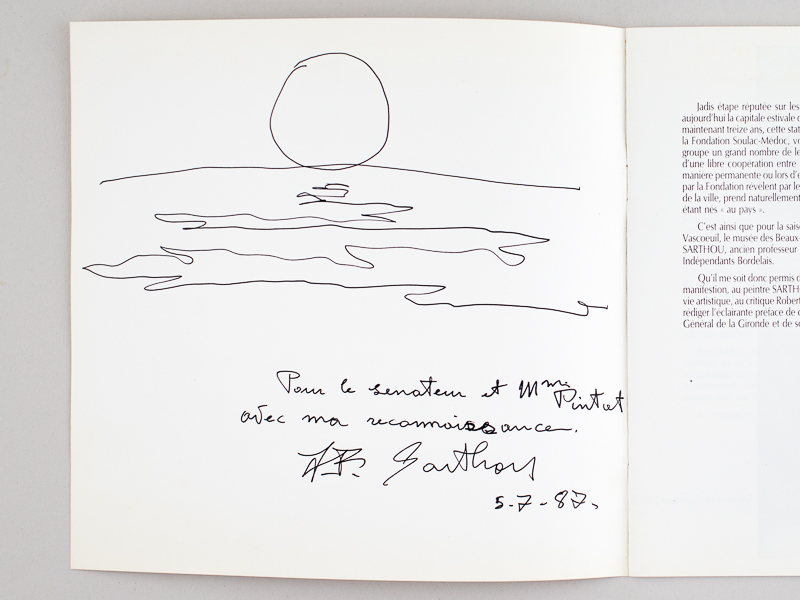 Pour le senateur et Mme Pintat
avec ma reconnaissance.
Sarthou
5-7-87.
Jadis étape réputée sur les
aujourd'hui la capitale estivale
maintenant treize ans, cette
la Fondation Soulac-Médoc,
groupe un grand nombre de
d'une libre coopération entre
manière permanente ou lors
par la Fondation révèlent par
de la ville, prend naturellement
étant nés « au pays ».
C'est ainsi que pour la
Vascoeuil, le musée des Beaux-
SARTHOU, ancien professeur
Indépendants Bordelais.
Qu'il me soit donc permis
manifestion, au peintre
vie artistique, au critique
rédiger l'éclairante préface de
Général de la Gironde et de